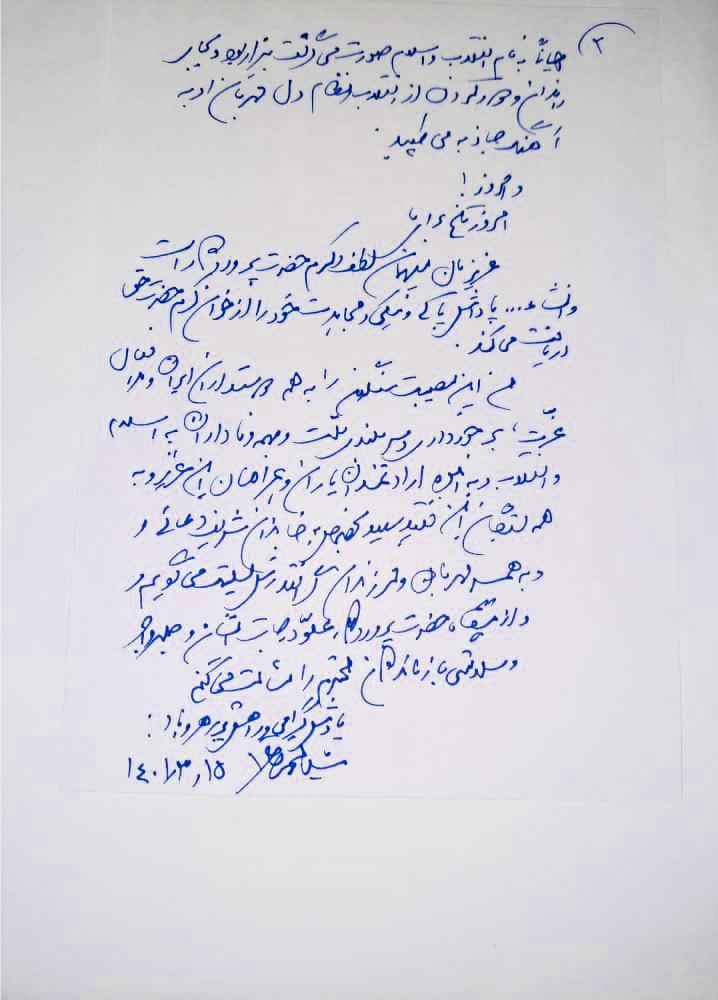 ۳
احیاناً به نام انقلاب و اسلام صورت می گرفت بیزار بود و بجای
راندن و دور کردن از انقلاب و نظام دل مهربان او به
آهنگ جاذبه می طپید.
و امروز!
امروز تلخ برای ما
عزیزمان میهمان لطف و کرم حضرت پروردگار است
وانشاء... پاداش پاکی و نیکی و مجاهدت خود را از خوان کرم حضرت حق
دریافت می کند.
من این مصیبت سنگین را به همه دوستداران ایران و
عزّت، برخورداری و سربلندی ملّت و همه وفاداران به اسلام
و انقلاب و به انبوه ارادتمندان یاران و همراهان این عزیز و به
همه بستگان این فقید سعید بخصوص به خاندان شریف دعائی و
و به همسر مهربان و فرزندان گرانقدرش تسلیت می گویم و
و از پیشگاه حضرت پروردگار علوّ درجات ایشان و صبر و اجر
و سلامتی بازماندگان محترم را مسألت می کنم
یادش گرامی و راهش پر رهرو باد:
سید محمد خاتمی ۱۴۰۱/۳/۱۵